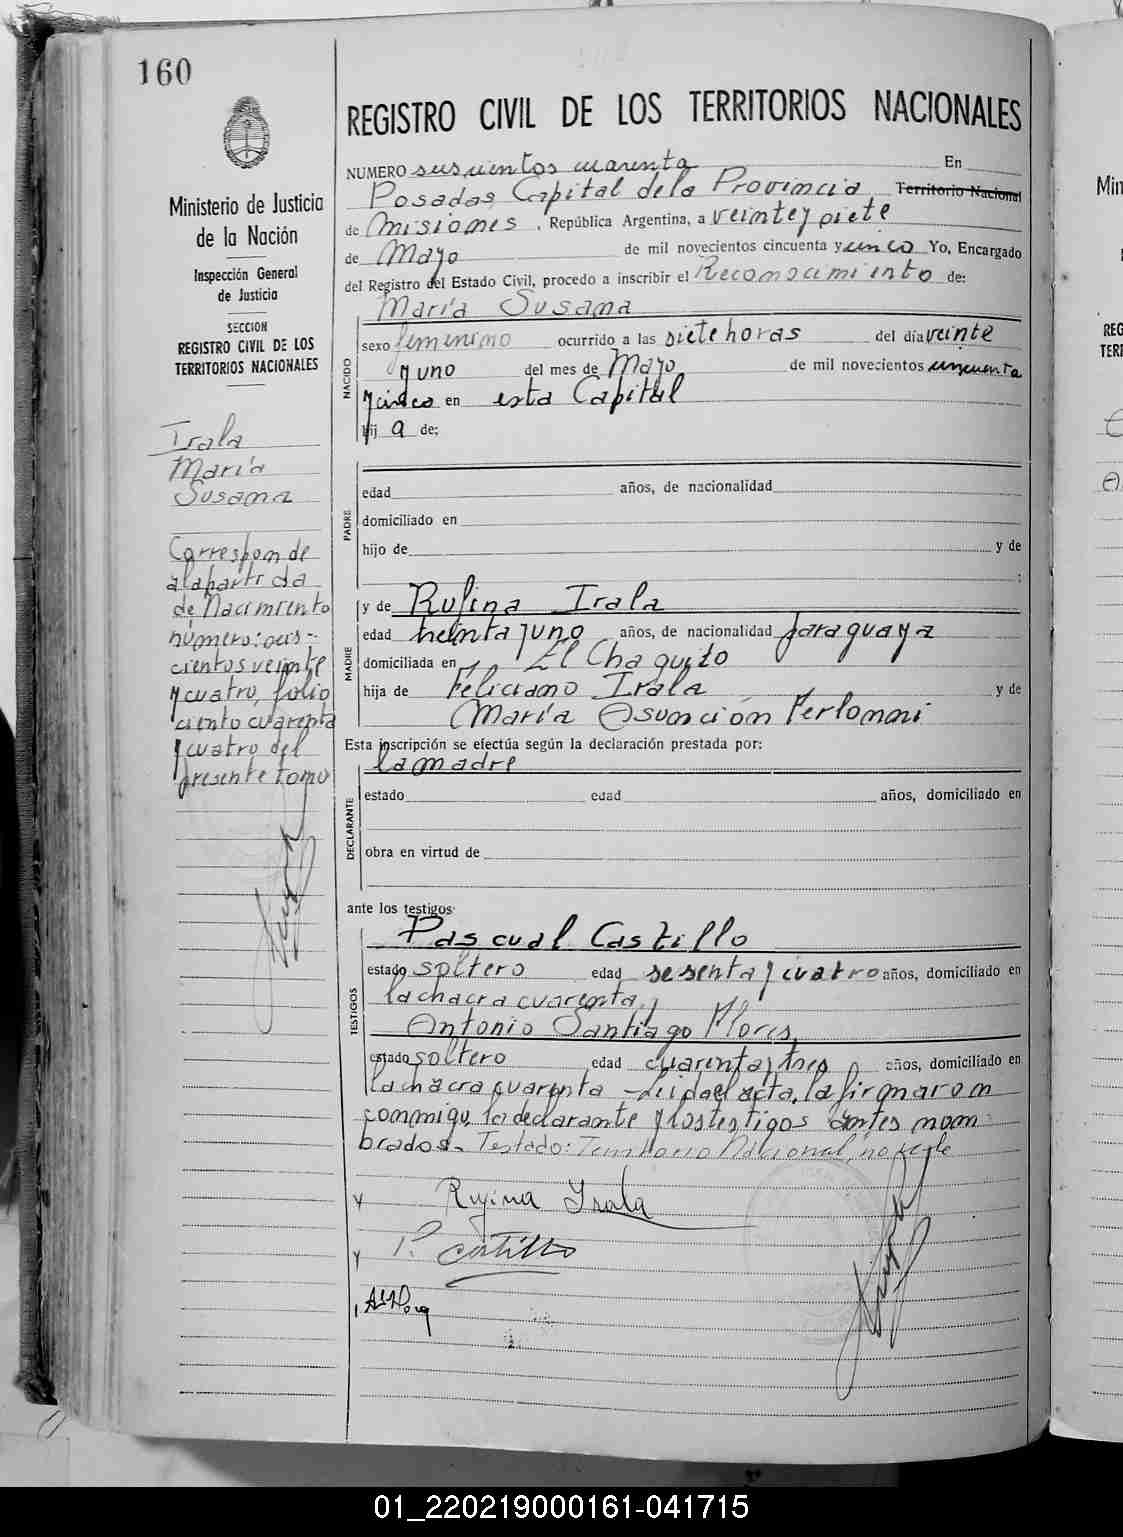 160
REGISTRO CIVIL DE LOS TERRITORIOS NACIONALES
Ministerio de Justicia
de la Nación
Inspección General
de Justicia
SECCION
REGISTRO CIVIL DE LOS
TERRITORIOS NACIONALES
Irala
María
Susana
Corresponde
a la partida
de Nacimiento
número: seis-
cientos veinte
y cuatro, folio
ciento cuarenta
y cuatro del
presente tomo
NUMERO seiscientos cuarenta En
Posadas, Capital de la Provincia Territorio Nacional
de Misiones, República Argentina, a veinte y siete
de Mayo de mil novecientos cincuenta y cinco Yo, Encargado
del Registro del Estado Civil, procedo a inscribir el Reconocimiento de:
María Susana
NACIDO
sexo femenino ocurrido a las siete horas del día veinte
y uno del mes de Mayo de mil novecientos cincuenta
y cinco en esta Capital
hij a de:
PADRE
edad años, de nacionalidad
domiciliado en
hijo de y de
:
MADRE
y de Rufina Irala
edad treinta y uno años, de nacionalidad paraguaya
domiciliada en El Chaquito
hija de Feliciano Irala y de
María Asunción
Esta inscripción se efectúa según la declaración prestada por:
la madre
DECLARANTE
estado edad años, domiciliado en
obra en virtud de
ante los testigos:
TESTIGOS
Pascual Castillo
estado soltero edad sesenta y cuatro años, domiciliado en
la chacra cuarenta y
Antonio Santiago Flores,
estado soltero edad cuarenta y tres años, domiciliado en
la chacra cuarenta - Leida el acta, la firmaron
conmigo, la declarante y los testigos antes nom-
brados. Testado: Territorio Nacional, no vale
Rufina Irala
P. Castillo
01_220219000161-041715